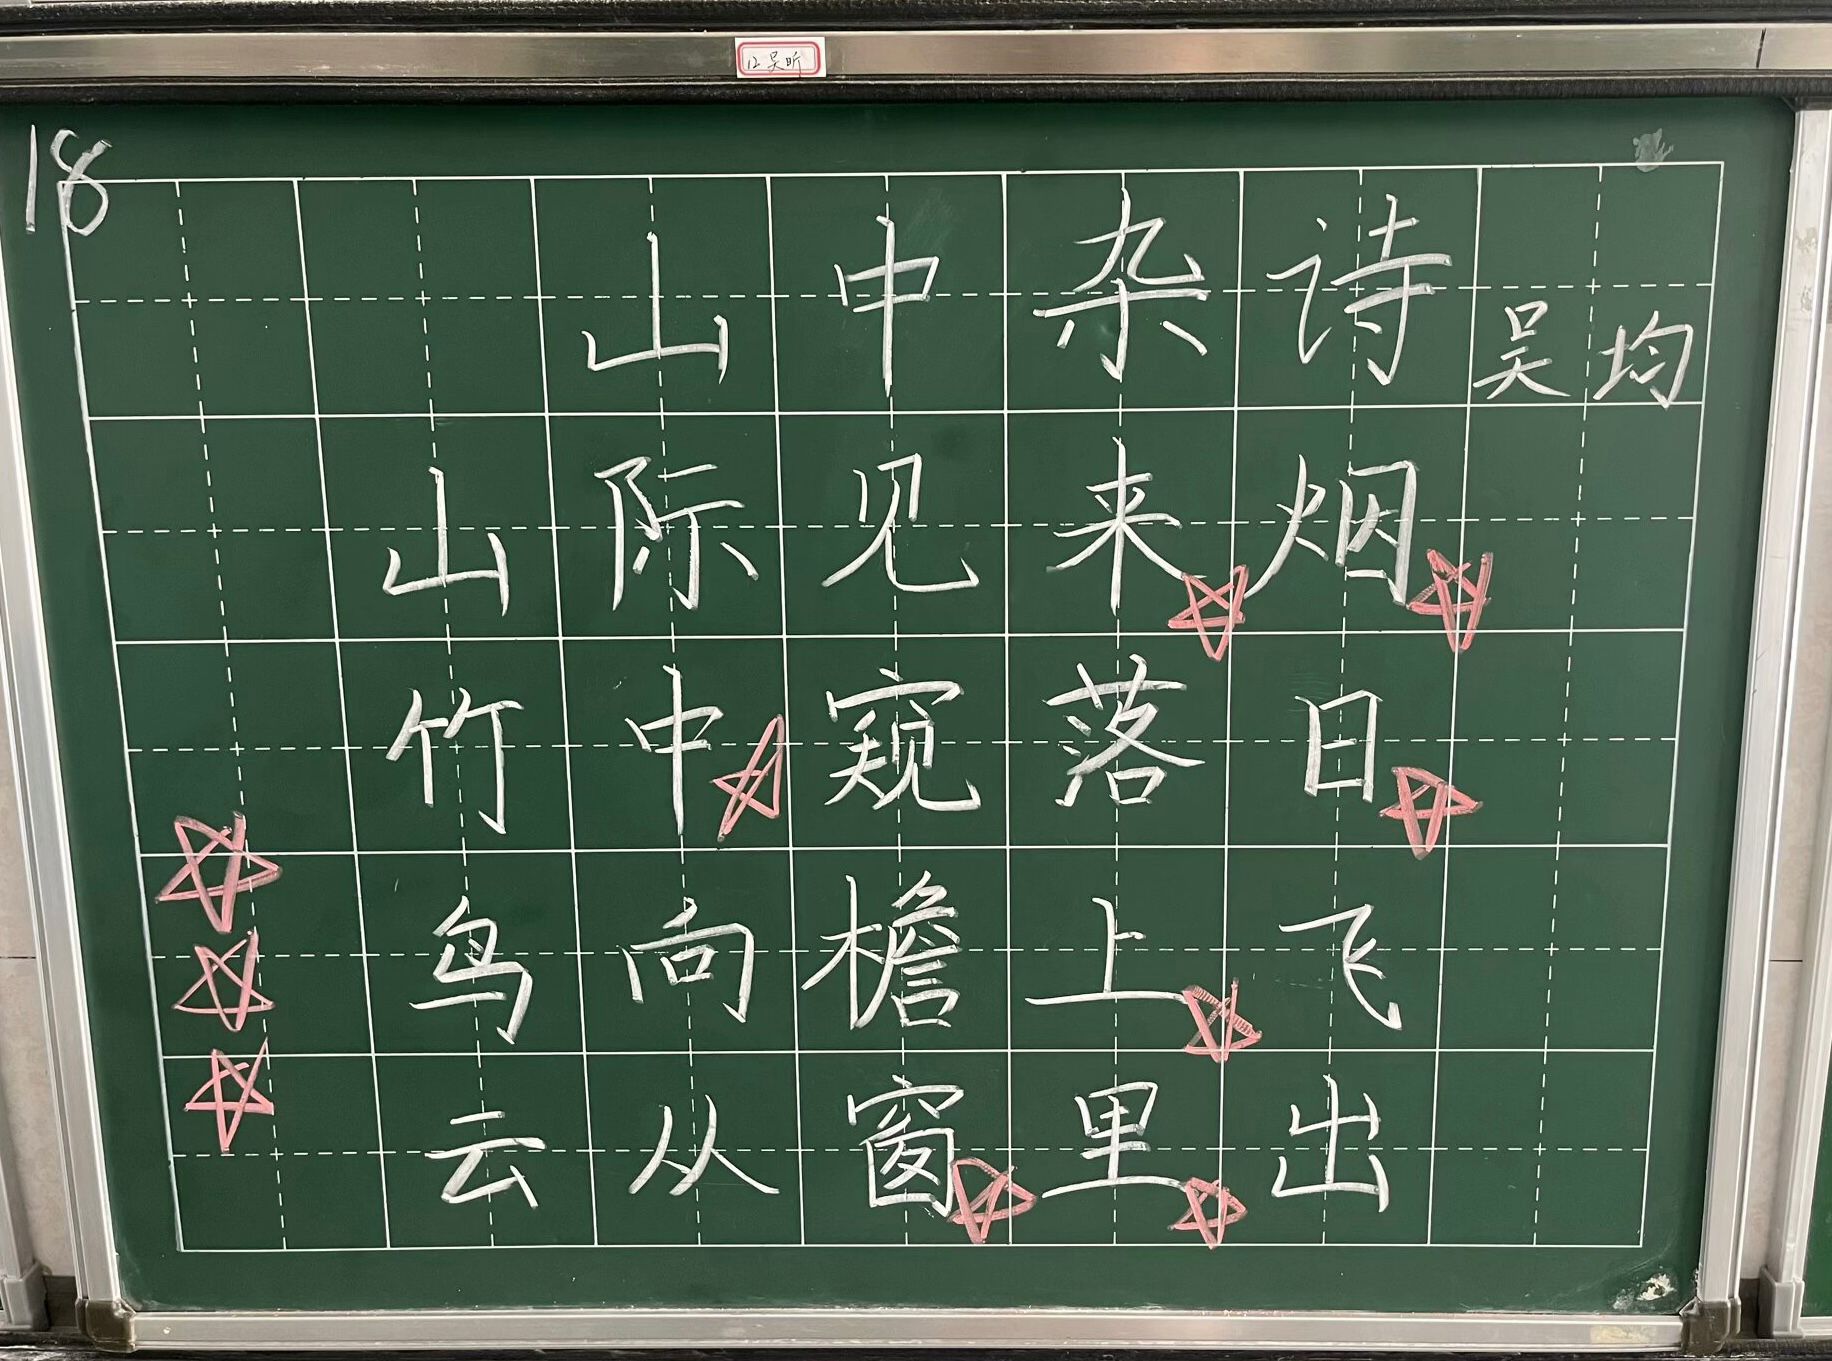 12吴昕
18
山中杂诗 吴均
山际见来烟
竹中窥落日
鸟向檐上飞
云从窗里出